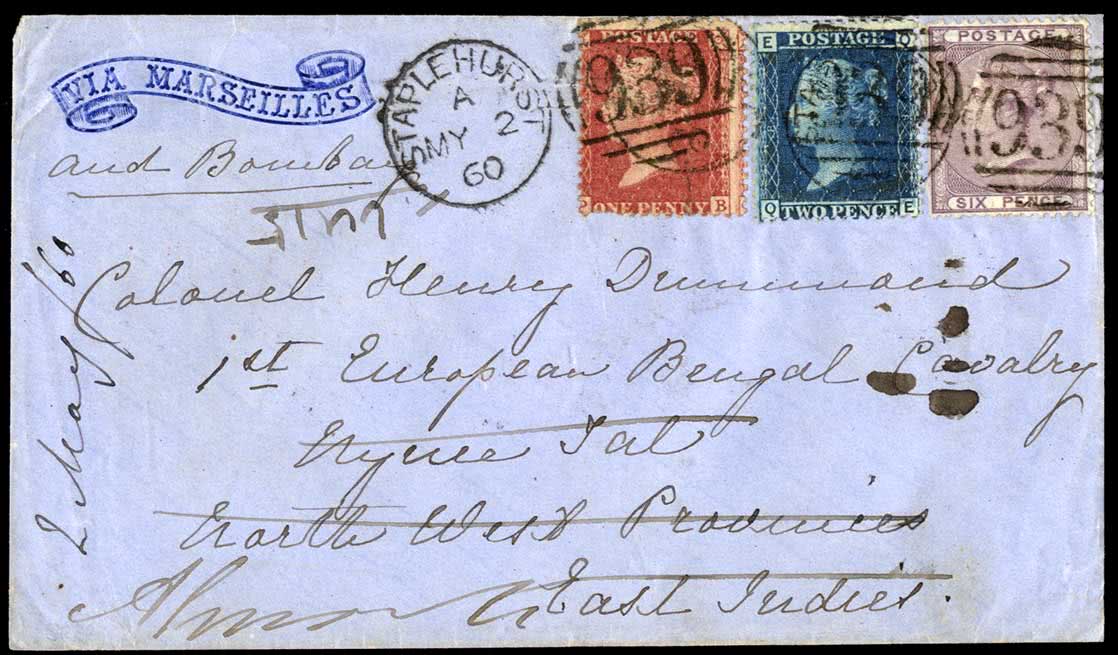 VIA MARSEILLES
and Bombay
STAPLEHURST
A
MY 2
60
POSTAGE
939
ONE PENNY
B
E POSTAGE Q
Q TWO PENCE E
POSTAGE
939
SIX PENCE
Colonel Henry Drummond
1st European Bengal Cavalry
Nynee Tal
North West Provinces
East Indies.
Almorah
2 May /60